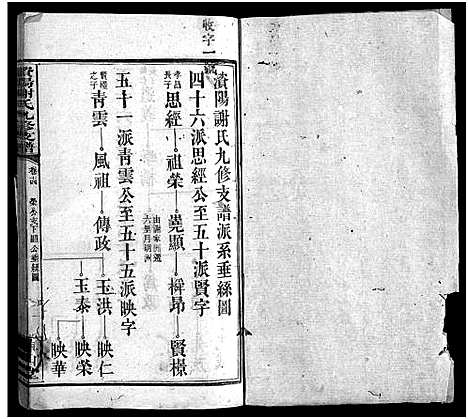 收字一號
資陽謝氏九修支譜派系垂絲圖
四十六派思經公至五十派賢字
孝昌長子
思經
祖榮
堯顯
由謝家洲遷六里月明洲
舜昂
賢樑
五十一派青雲公至五十五派映字
賢樑之子
青雲
鳳祖
傳政
玉洪
映仁
玉泰
映榮
映華
資陽謝氏九修支譜
卷十四
榮公支下思公垂絲圖